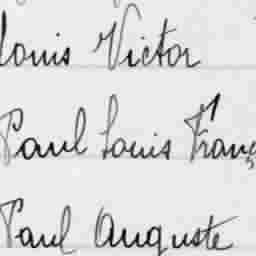 Louis Victor
Paul Louis Franç
Paul Auguste